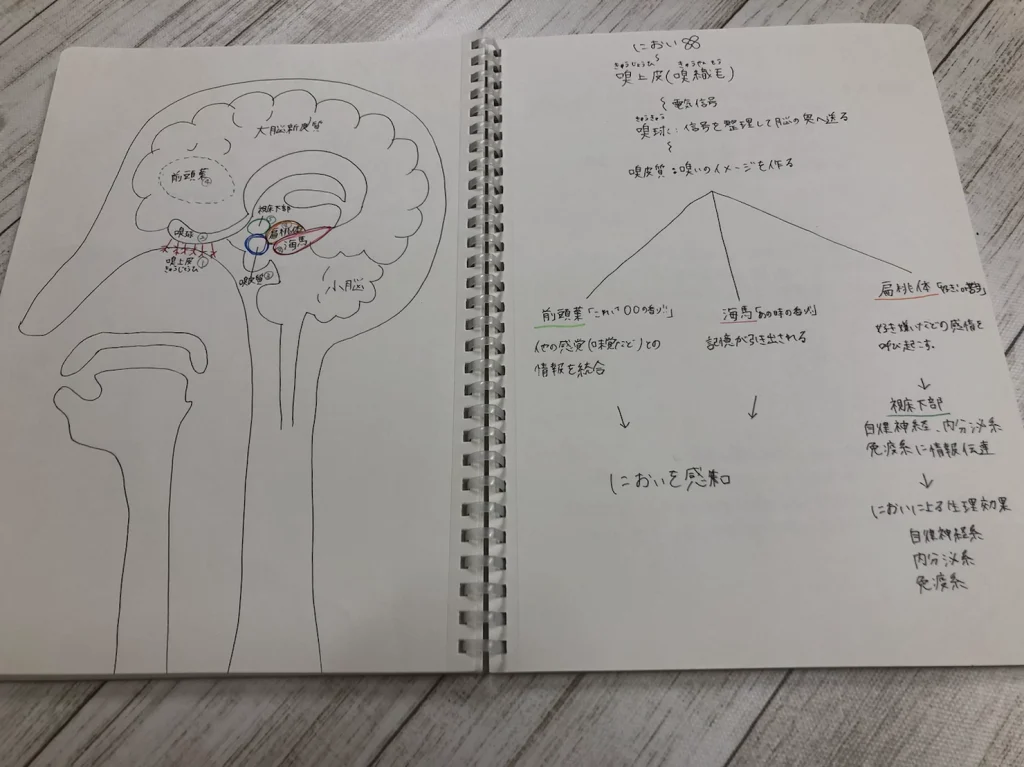 大脳新皮質
前頭葉④
視床下部
⑦
嗅球②
扁桃体
海馬
嗅上皮①
きゅうじょうひ
嗅皮質③
小脳
におい
きゅうじょうひ
嗅上皮(嗅繊毛)
電気信号
嗅球:信号を整理して脳の奥へ送る
嗅皮質:嗅いのイメージを作る
前頭葉「これって○○の香り」
他の感覚(味覚など)との
情報を統合
海馬「あの時の香り」
記憶が引き出される
扁桃体
好き嫌いなどの感情を
呼び起こす。
視床下部
自律神経、内分泌系
免疫系に情報伝達
においを感知
においによる生理効果
自律神経系
内分泌系
免疫系